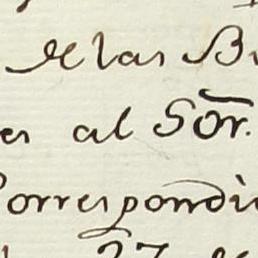 de las B
es al Sōr.
Correspondi
27 de